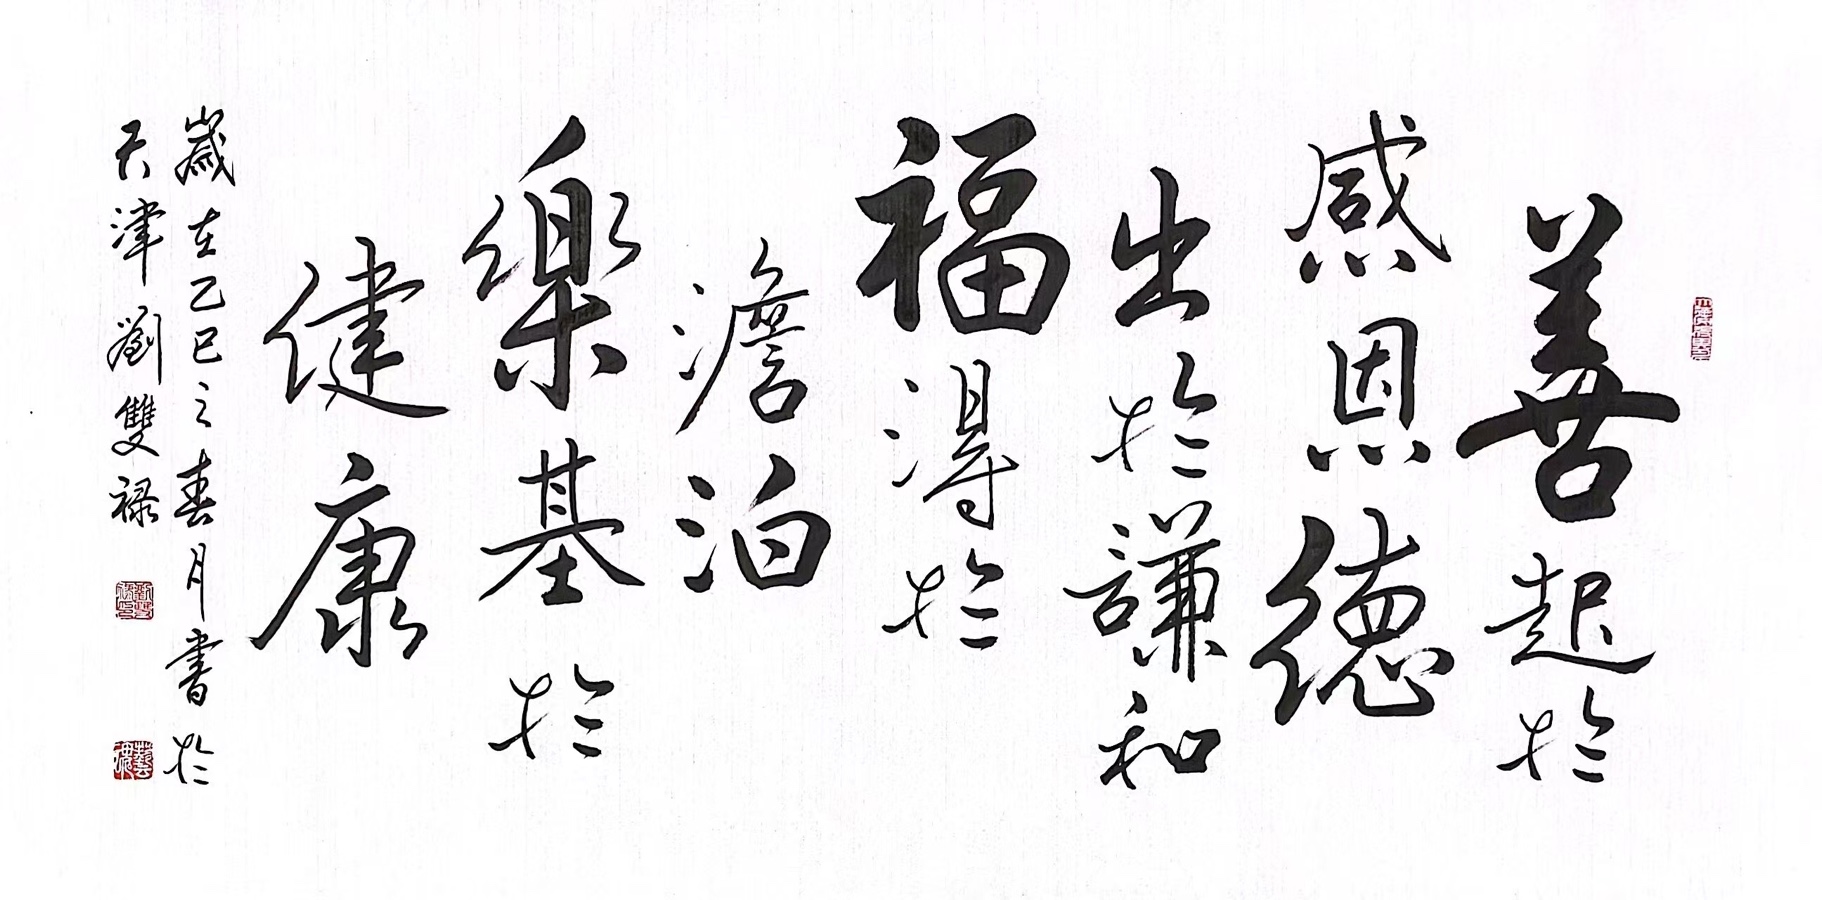 善起於
感恩德
出於謙和
福得於
澹泊
樂基於
健康
歲在乙巳之春月書於
天津劉雙禄